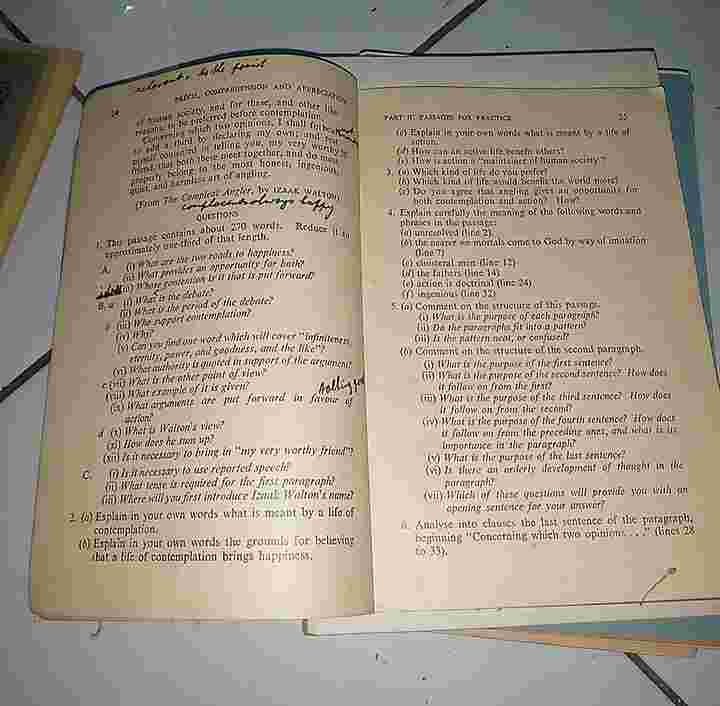 relevant to the point
24 PRÉCIS, COMPREHENSION AND APPRECIATION
of human society, and for these, and other like
reasons, to be preferred before contemplation.
Concerning which two opinions, I shall forbear
to add a third by declaring my own; and rest
myself contented in telling you, my very worthy
friend, that both these meet together, and do most
properly belong to the most honest, ingenious,
quiet, and harmless art of angling.
(From The Compleat Angler, by IZAAK WALTON)
always happy
QUESTIONS
1. This passage contains about 270 words. Reduce it to
approximately one-third of that length.
A. (i) What are the two roads to happiness?
(ii) What provides an opportunity for both?
(iii) Whose contention is it that is put forward?
B. a (i) What is the debate?
(ii) What is the period of the debate?
(iii) Who support contemplation?
(iv) Why?
(v) Can you find one word which will cover "infiniteness,
eternity, power, and goodness, and the like"?
(vi) What authority is quoted in support of the argument?
c (vii) What is the other point of view?
(viii) What example of it is given?
(ix) What arguments are put forward in favour of
action?
d (x) What is Walton's view?
(xi) How does he sum up?
(xii) Is it necessary to bring in "my very worthy friend"?
C. (i) Is it necessary to use reported speech?
(ii) What tense is required for the first paragraph?
(iii) Where will you first introduce Izaak Walton's name?
2. (a) Explain in your own words what is meant by a life of
contemplation.
(b) Explain in your own words the grounds for believing
that a life of contemplation brings happiness.
PART II: PASSAGES FOR PRACTICE 25
(c) Explain in your own words what is meant by a life of
action.
(d) How can an active life benefit others?
(e) How is action a "maintainer of human society"?
3. (a) Which kind of life do you prefer?
(b) Which kind of life would benefit the world more?
(c) Do you agree that angling gives an opportunity for
both contemplation and action? How?
4. Explain carefully the meaning of the following words and
phrases in the passage:
(a) unresolved (line 2)
(b) the nearer we mortals come to God by way of imitation
(line 7)
(c) cloisteral men (line 12)
(d) the fathers (line 14)
(e) action is doctrinal (line 24)
(f) ingenious (line 32)
5. (a) Comment on the structure of this passage.
(i) What is the purpose of each paragraph?
(ii) Do the paragraphs fit into a pattern?
(iii) Is the pattern neat, or confused?
(b) Comment on the structure of the second paragraph.
(i) What is the purpose of the first sentence?
(ii) What is the purpose of the second sentence? How does
it follow on from the first?
(iii) What is the purpose of the third sentence? How does
it follow on from the second?
(iv) What is the purpose of the fourth sentence? How does
it follow on from the preceding ones, and what is its
importance in the paragraph?
(v) What is the purpose of the last sentence?
(vi) Is there an orderly development of thought in the
paragraph?
(vii) Which of these questions will provide you with an
opening sentence for your answer?
6. Analyse into clauses the last sentence of the paragraph,
beginning "Concerning which two opinions . . ." (lines 28
to 33).